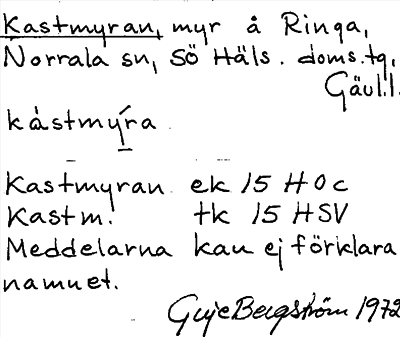 Kastmyran, myr å Ringa,
Norrala sn, Sö Häls. doms.tg,
Gävl.l.
kàstmýra
Kastmyran ek 15 H 0 c
Kastm. tk 15 HSV
Meddelarna kan ej förklara
namnet.
Bergström 1972